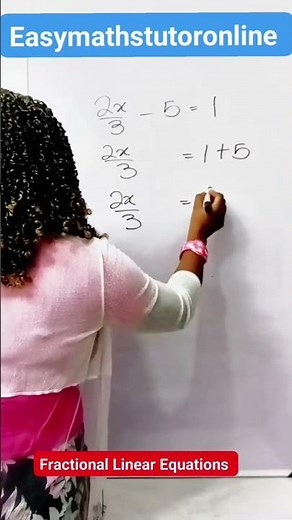 Easymathstutoronline
2x/3 - 5 = 1
2x/3 = 1 + 5
2x/3 =
Fractional Linear Equations